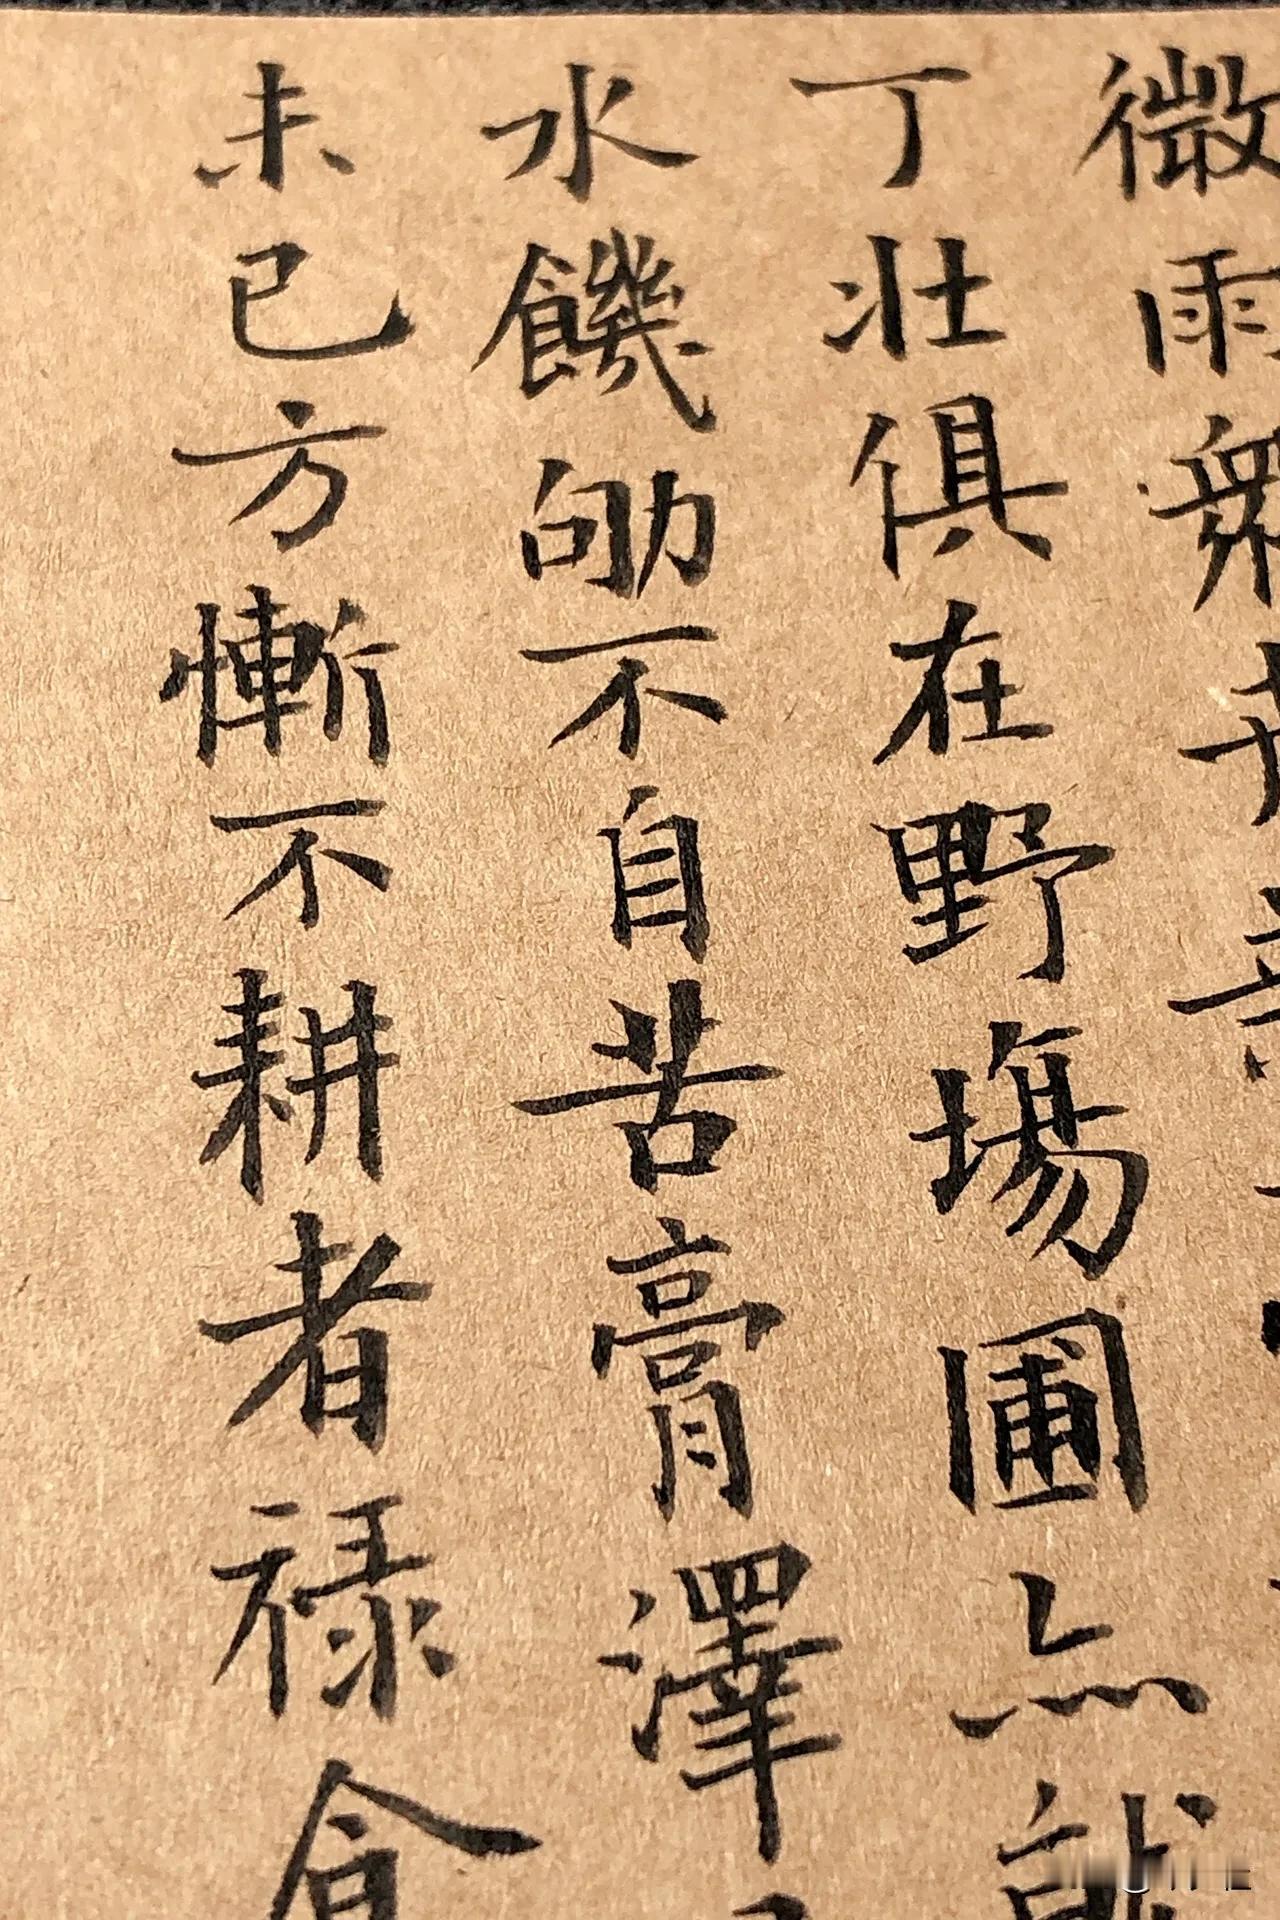 微雨衆
丁壯俱在野場圃亦就
水饑劬不自苦膏澤
未已方慚不耕者禄食